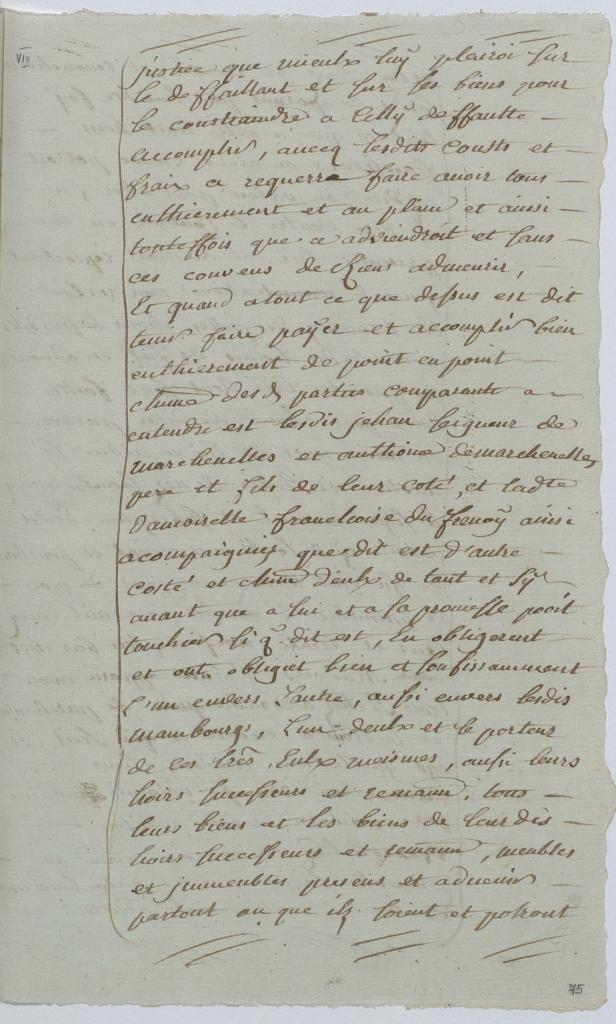 VIII
justice que mieulx luy plairoi sur
le deffaillant et sur ses biens pour
le constraindre a celly deffaulte
accomplir, aucecq lesdits cousts et
fraix a requerre faire avoir tous
enthierement et au plain et aussi
touteffois que ce adviendroit et sans
ces convens de Riens admenrir,
Et quand atout ce que dessus est dit
tenir faire payer et accomplir bien
enthierement de point en point
chūne desd parties comparante a
entendre est lesdis jehan seigneur de
marchenelles et anthione demarchenelles,
pere et fils de leur coté, et ladte
Damoiselle franchoise du frenoÿ ainsi
acompaignié que dit est d'autre
costé et chūn d'eulx de tant et sÿ
avant que a lui et a sa promesse poöit
touchier si q̃ dit est, En obligerent
et ont obligiet bien et souffissamment
l'un envers l'autre, aussi envers lesdis
mambourgs, l'un deulx et le porteur
de ces lrēs, Eulx meismes, aussi leurs
hoirs successeurs et remann, tous
leurs biens et les biens de leurdis
hoirs successeurs et remann, meubles
et jmmeubles presens et advenir
partout ou que ilz soient et polront
45